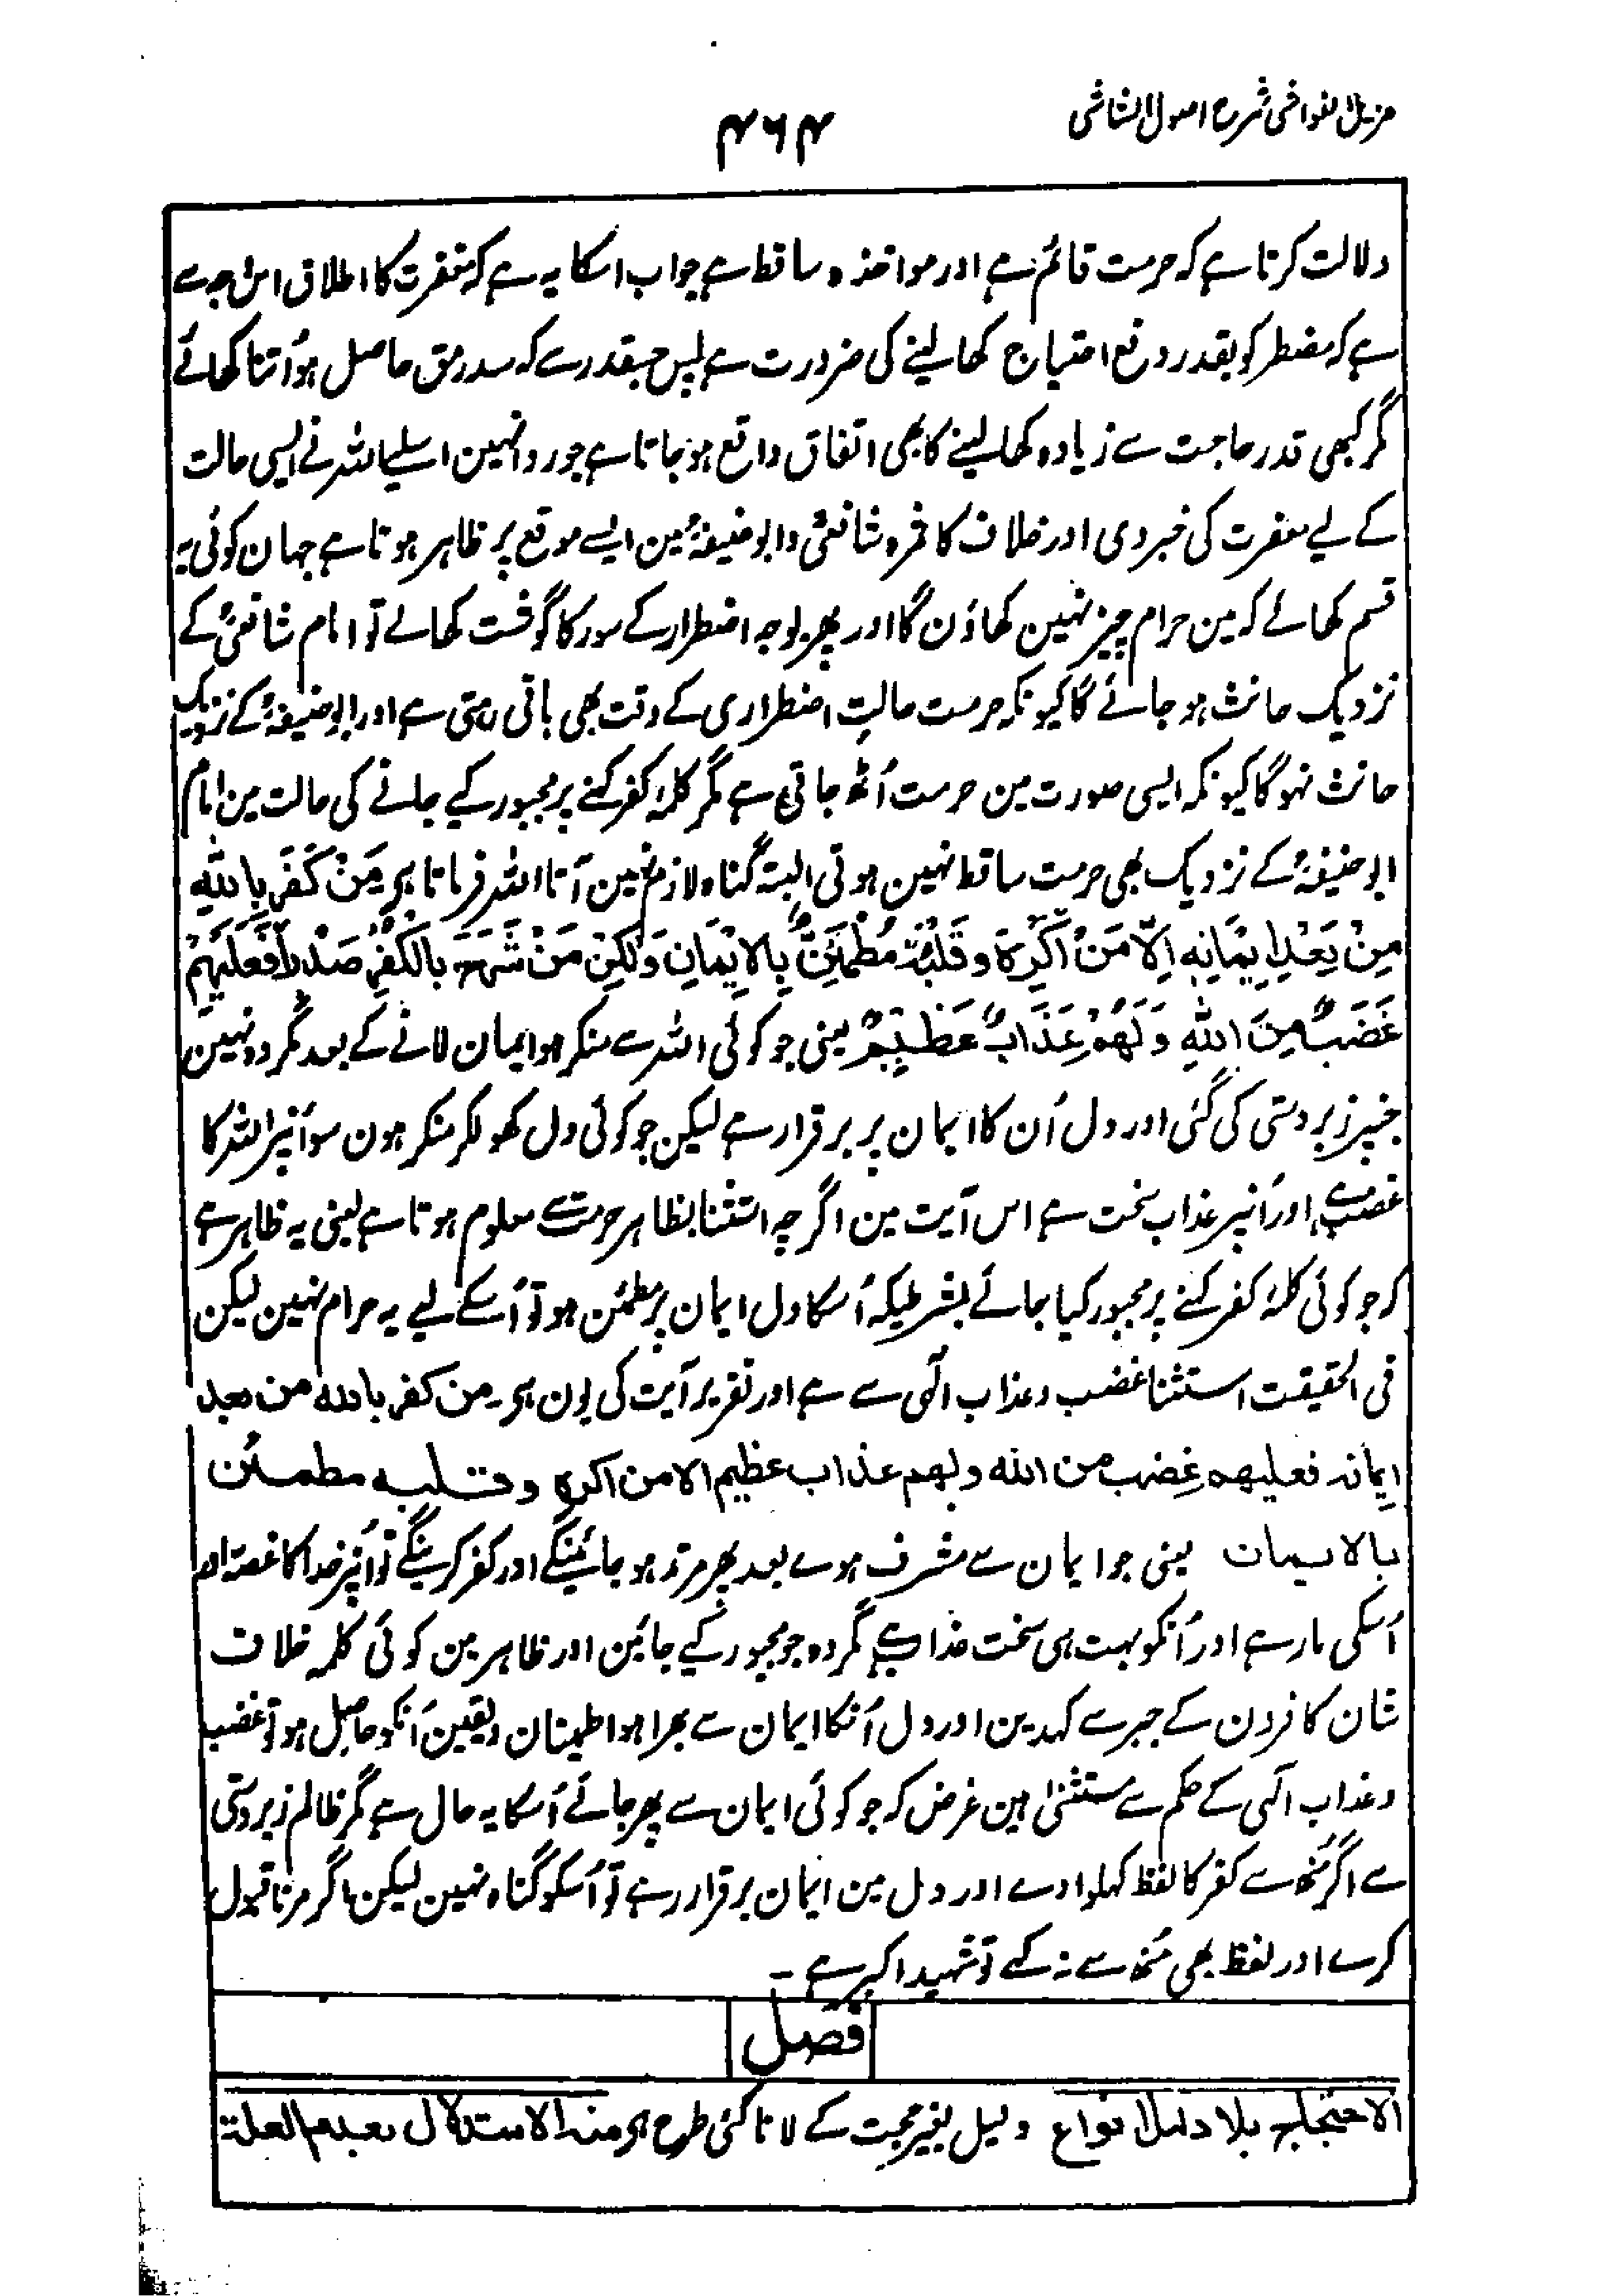 مزیل الغواشی شرح اصول الشاشی
۴۶۴
دلالت کرتا ہے کہ حرمت قائم ہے اور مواخذہ ساقط ہے جواب اسکا یہ ہے کہ مغفرت کا اطلاق اس وجہ سے
ہے کہ مضطر کو بقدر رفع احتیاج کھا لینے کی ضرورت ہے پس جسقدر سے کہ سد رمق حاصل ہو اُتنا کھائے
مگر کبھی قدر حاجت سے زیادہ کھا لینے کا بھی اتفاق واقع ہو جاتا ہے جو روا نہین اسلیے اللہ نے ایسی حالت
کے لیے مغفرت کی خبر دی اور خلاف کا ثمرہ شافعیؒ و ابو حنیفہؒ مین ایسے موقع پر ظاہر ہوتا ہے جہان کوئی یہ
قسم کھائے کہ مین حرام چیز نہین کھاؤن گا اور پھر بوجہ اضطرار کے سور کا گوشت کھالے تو امام شافعیؒ کے
نزدیک حانث ہو جائے گا کیونکہ حرمت حالتِ اضطراری کے وقت بھی باقی رہتی ہے اور ابو حنیفہؒ کے نزدیک
حانث نہوگا کیونکہ ایسی صورت مین حرمت اُٹھ جاتی ہے مگر کلمۂ کفر کہنے پر مجبور کیے جانے کی حالت مین امام
ابو حنیفہؒ کے نزدیک بھی حرمت ساقط نہین ہوتی البتہ گناہ لازم نہین آتا اللہ فرماتا ہی مَنْ كَفَرَ بِاللّٰهِ
مِنْ بَعْدِ اِيْمَانِهٖ اِلَّا مَنْ اُكْرِهَ وَقَلْبُهٗ مُطْمَئِنٌّ بِالْاِيْمَانِ وَلٰكِنْ مَنْ شَرَحَ بِالْكُفْرِ صَدْرًا فَعَلَيْهِمْ
غَضَبٌ مِنَ اللّٰهِ وَلَهُمْ عَذَابٌ عَظِيْمٌ یعنی جو کوئی اللہ سے منکر ہو ایمان لانے کے بعد مگر وہ نہین
جنپر زبردستی کی گئی اور دل اُن کا ایمان پر برقرار ہے لیکن جو کوئی دل کھولکر منکر ہون سو اُنپر اللہ کا
غضب ہے اور اُنپر عذاب سخت ہے اس آیت مین اگرچہ استثنا بظاہر حرمت سے معلوم ہوتا ہے یعنی یہ ظاہر ہے
کہ جو کوئی کلمۂ کفر کہنے پر مجبور کیا جائے بشرطیکہ اُسکا دل ایمان پر مطمئن ہو تو اُسکے لیے یہ حرام نہین لیکن
فی الحقیقت استثنا غضب و عذاب الٰہی سے ہے اور تقریر آیت کی یون ہی۔ من کفر باللہ من بعد
ایمانہ فعلیھم غضب من اللہ ولھم عذاب عظیم الا من اکرہ وقلبہ مطمئن
بالایمان یعنی جو ایمان سے مشرف ہوے بعد پھر مرتد ہو جائینگے اور کفر کرینگے تو اُنپر خدا کا غصہ اور
اُسکی مار ہے اور اُنکو بہت ہی سخت عذاب ہے مگر وہ جو مجبور کیے جائین اور ظاہر مین کوئی کلمہ خلاف
شان کافرون کے جبر سے کہدین اور دل اُنکا ایمان سے بھرا ہو اطمینان و یقین اُنکو حاصل ہو تو غضب
و عذاب الٰہی کے حکم سے مستثنیٰ ہین غرض کہ جو کوئی ایمان سے پھر جائے اُسکا یہ حال ہے مگر ظالم زبردستی
سے اگر مُنھ سے کفر کا لفظ کہلوادے اور دل مین ایمان برقرار رہے تو اُسکو گناہ نہین لیکن اگر مرنا قبول
کرے اور لفظ بھی مُنھ سے نہ کہے تو شہید اکبر ہے ۔
فصل
الاحتجاج بلا دلیل انواع دلیل بغیر حجت کے لانا کئی طرح ہی منہ الاستدلال بعدم العلة